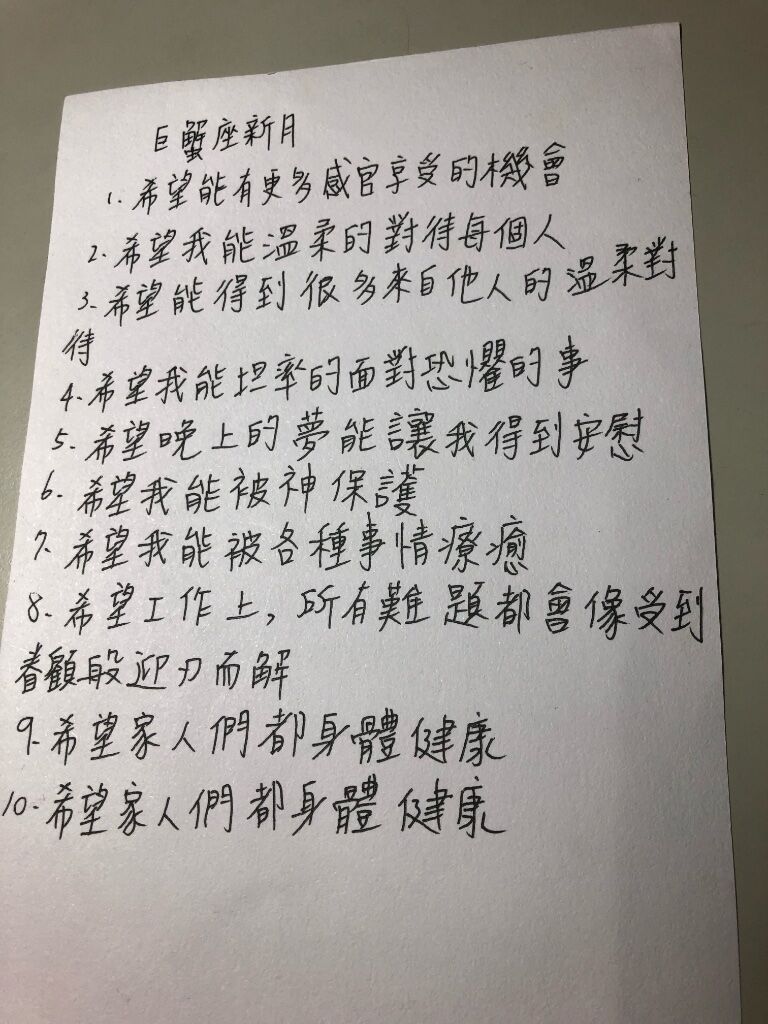 巨蟹座新月
1. 希望能有更多感官享受的機會
2. 希望我能溫柔的對待每個人
3. 希望能得到很多來自他人的溫柔對
待
4. 希望我能坦率的面對恐懼的事
5. 希望晚上的夢能讓我得到安慰
6. 希望我能被神保護
7. 希望我能被各種事情療癒
8. 希望工作上,所有難題都會像受到
眷顧般迎刃而解
9. 希望家人們都身體健康
10. 希望家人們都身體健康